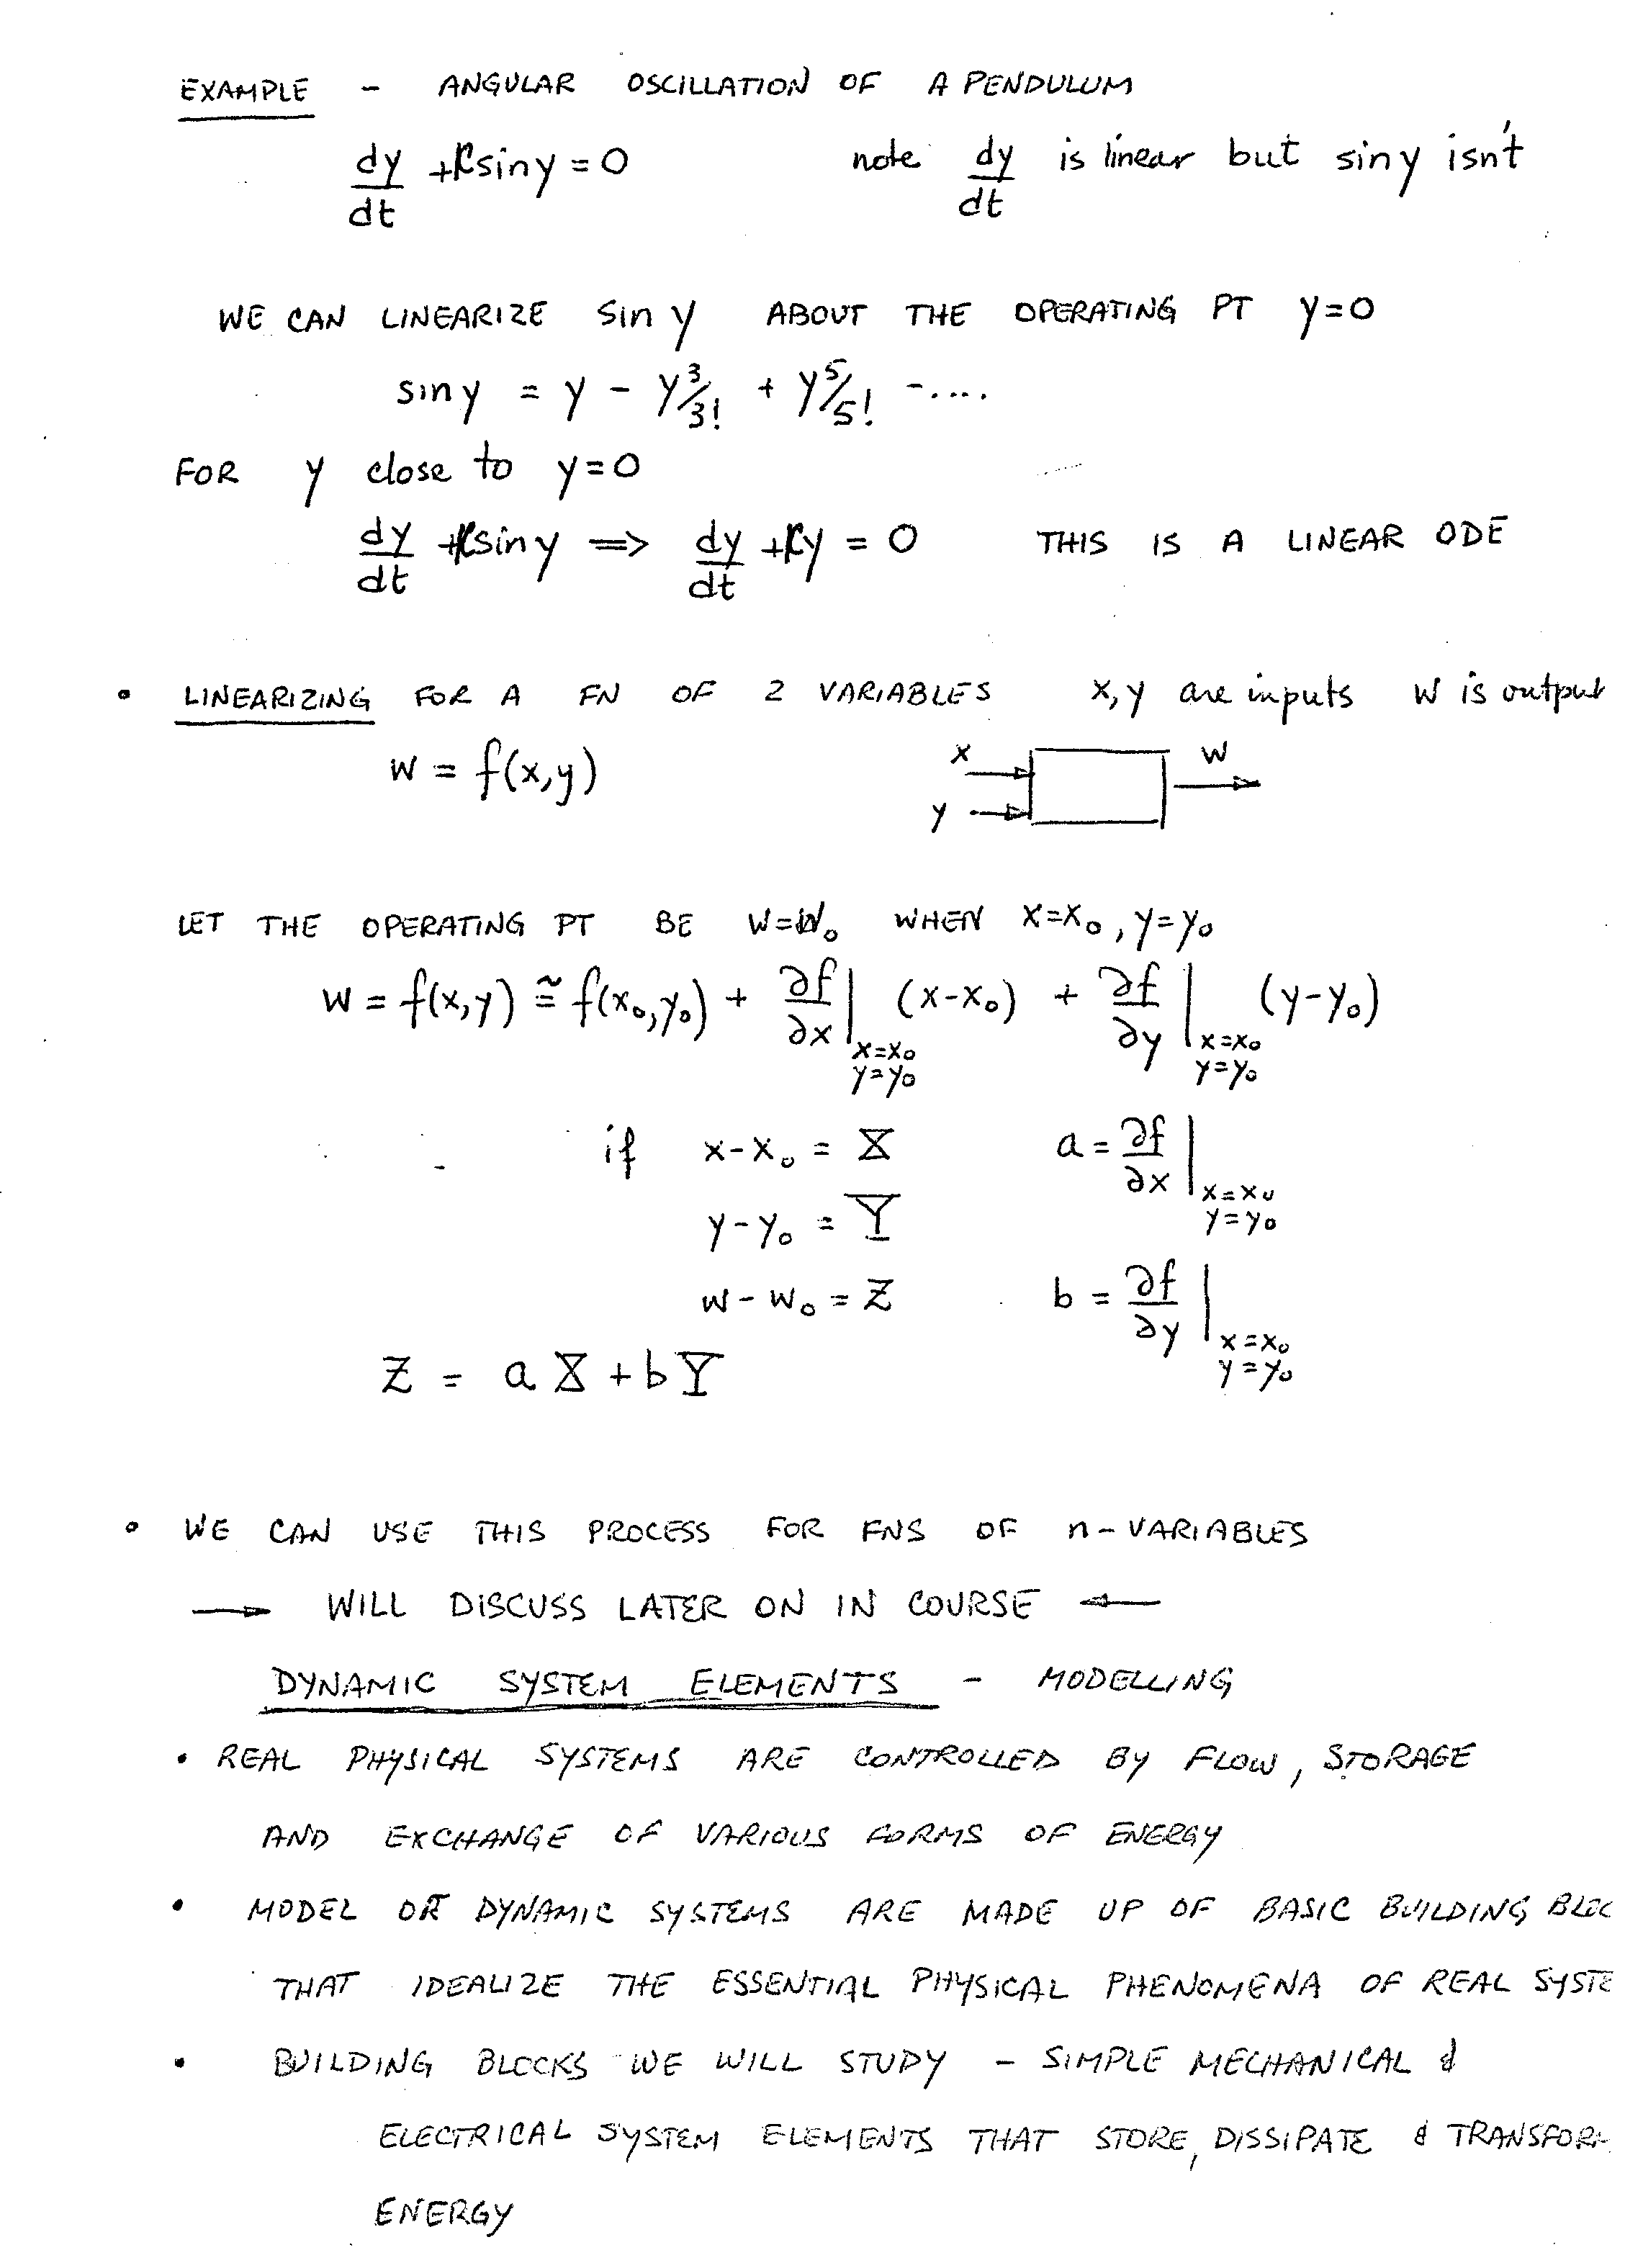 EXAMPLE - ANGULAR OSCILLATION OF A PENDULUM
dy/dt + K sin y = 0 note dy/dt is linear but sin y isn't
WE CAN LINEARIZE sin y ABOUT THE OPERATING PT y=0
sin y = y - y³/3! + y⁵/5! - ....
FOR y close to y=0
dy/dt + K sin y => dy/dt + Ky = 0 THIS IS A LINEAR ODE
• LINEARIZING FOR A FN OF 2 VARIABLES x, y are inputs w is output
w = f(x,y) x y w
LET THE OPERATING PT BE w=w₀ WHEN x=x₀, y=y₀
w = f(x,y) ≅ f(x₀,y₀) + ∂f/∂x | x=x₀ y=y₀ (x-x₀) + ∂f/∂y | x=x₀ y=y₀ (y-y₀)
if x-x₀ = X a = ∂f/∂x | x=x₀ y=y₀
y-y₀ = Y
w-w₀ = Z b = ∂f/∂y | x=x₀ y=y₀
Z = aX + bY
• WE CAN USE THIS PROCESS FOR FNS OF n-VARIABLES
→ WILL DISCUSS LATER ON IN COURSE ←
DYNAMIC SYSTEM ELEMENTS - MODELLING
• REAL PHYSICAL SYSTEMS ARE CONTROLLED BY FLOW, STORAGE
AND EXCHANGE OF VARIOUS FORMS OF ENERGY
• MODEL OF DYNAMIC SYSTEMS ARE MADE UP OF BASIC BUILDING BLOC
THAT IDEALIZE THE ESSENTIAL PHYSICAL PHENOMENA OF REAL SYSTE
• BUILDING BLOCKS WE WILL STUDY - SIMPLE MECHANICAL &
ELECTRICAL SYSTEM ELEMENTS THAT STORE, DISSIPATE & TRANSFOR
ENERGY